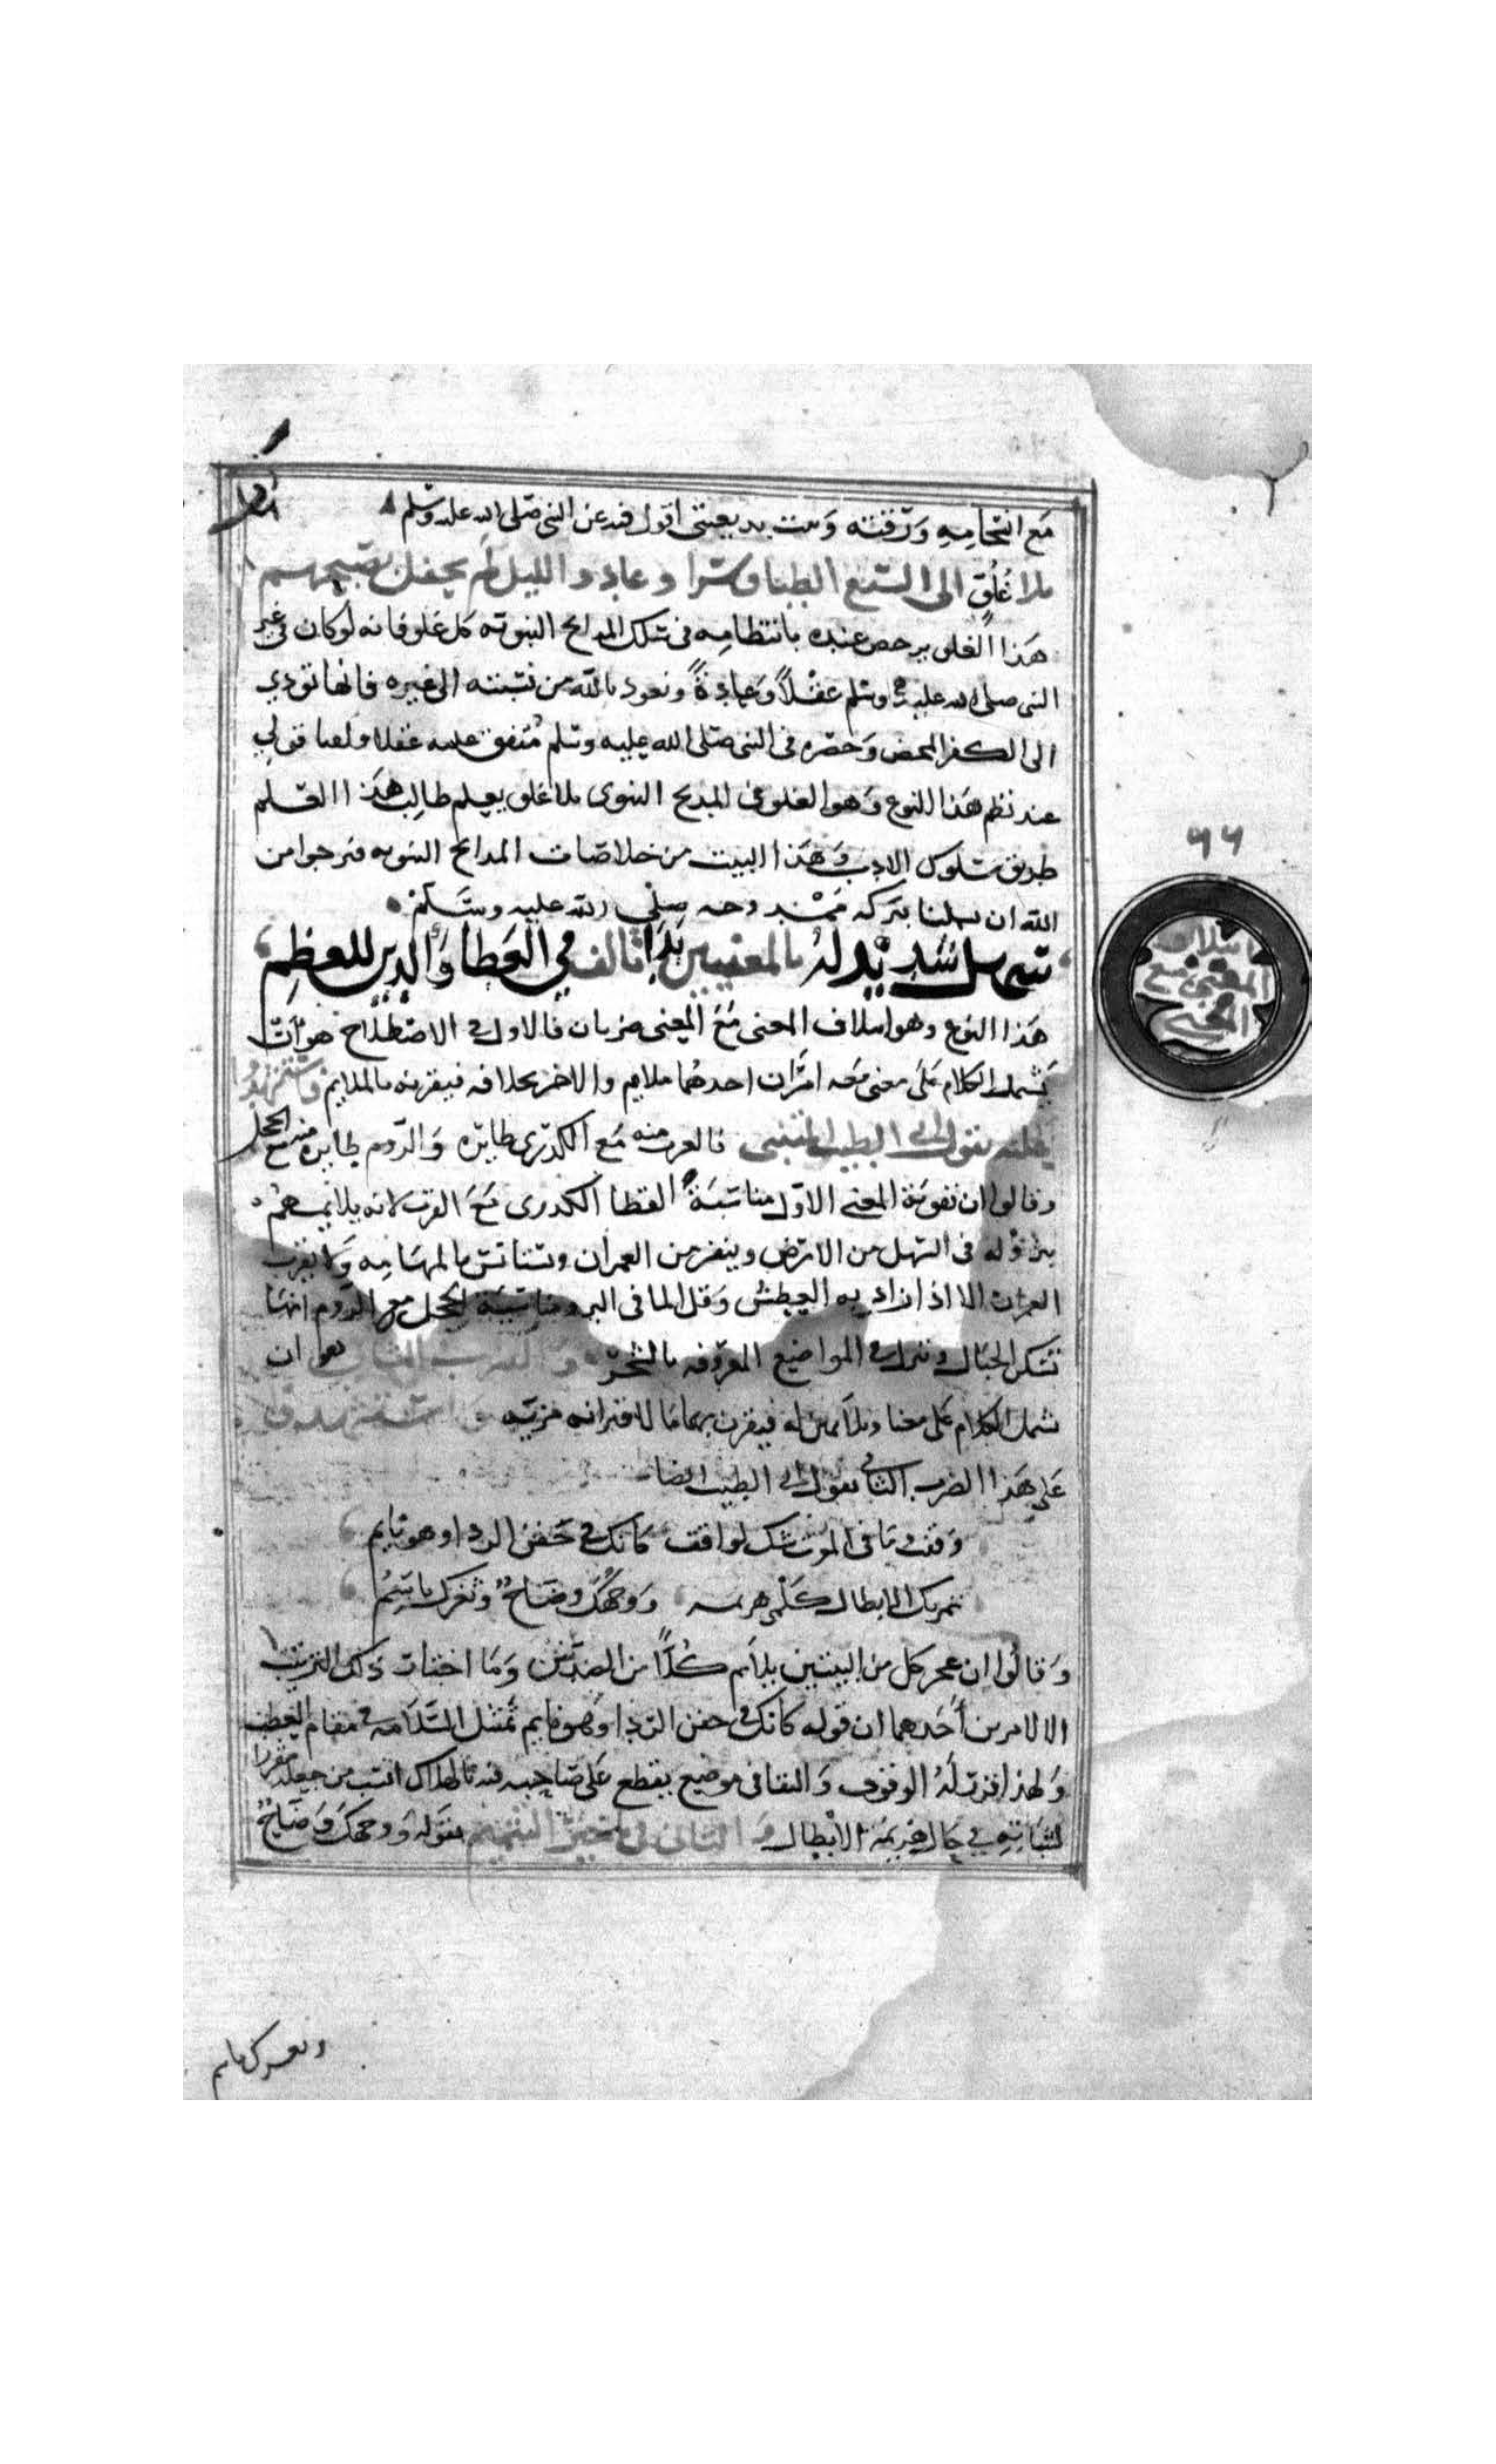 مع انتجامه ورقته وبيت بديعيتي اقول فيه عن النبي صلى الله عليه وسلم
بلا غلو الى السبع الطباق سرا وعاد والليل لم يحفل بصبحهم
هذا الغلو يرخص عنده بانتظامه في سلك المدايح النبويه كل غلو فانه لو كان في غير
النبي صلى الله عليه وسلم عقلاً وعادةً ونعوذ بالله من نسبته الى غيره فانها تودي
الى الكفر المحض وحصره في النبي صلى الله عليه وسلم متفق عليه عقلا ولعبا قولي
عند نظم هذا النوع وهو الغلو في المديح النبوى بلا غلو يعلم طالب هذا العلم
طريق سلوك الادب وهذا البيت من خلاصات المدايح النبويه فنرجوا من
الله ان يسملنا ببركه ممدوحه صلى الله عليه وسلم
سهل شديد له بالمعنيين بدا تالف في العطا والدين للعظم
هذا النوع وهو ايتلاف المعنى مع المعنى ضربان فالاول في الاصطلاح هو ان
يشمل الكلام على معنى معه امران احدهما ملايم والاخر بخلافه فيقرنه بالملايم واستشهدوا
عليه بقول ابي الطيب المتنبي فالعرب منه مع الكدرى طايره والروم طايره منه مع الحجل
وقالوا ان تقوية المعنى الاول مناسبة القطا الكدرى مع العرب لانه يلايمهم
بنزوله في السهل من الارض وينفر من العمران ويستانس بالمهامه ولا يقرب
العمران الا اذا زاد به العطش وقل الما في البر ومناسبة الحجل مع الروم انها
تسكن الجبال وتنزل في المواضع المعروفه بالشجر والضرب الثاني هو ان
يشمل الكلام على معنا وملايمين له فيقرن بهما ما لاقترانه مزيه واستشهدوا
على هذا الضرب الثاني بقول ابي الطيب ايضا
وقفت وما في الموت شك لواقف كانك في جفن الردا وهو نايم
تمر بك الابطال كلمى هزيمة ووجهك وضاح وثغرك باسم
وقالوا ان عجز كل من البيتين يلايم كلاً من الصدرين وما اختار ذلك الترتيب
الا لامرين أحدهما ان قوله كانك في جفن الردا وهو نايم تمثيل السلامه في مقام العطب
ولهذا قرر له الوقوف والبقا في موضع يقطع على صاحبه فيه بالهلاك انسب من جعله مقررا
لثباته في حال هزيمة الابطال والثاني ان تاخير التتميم بقوله ووجهك وضاح
وثغرك باسم
٦٦
ايتلاف
المعنى مع
المعنى